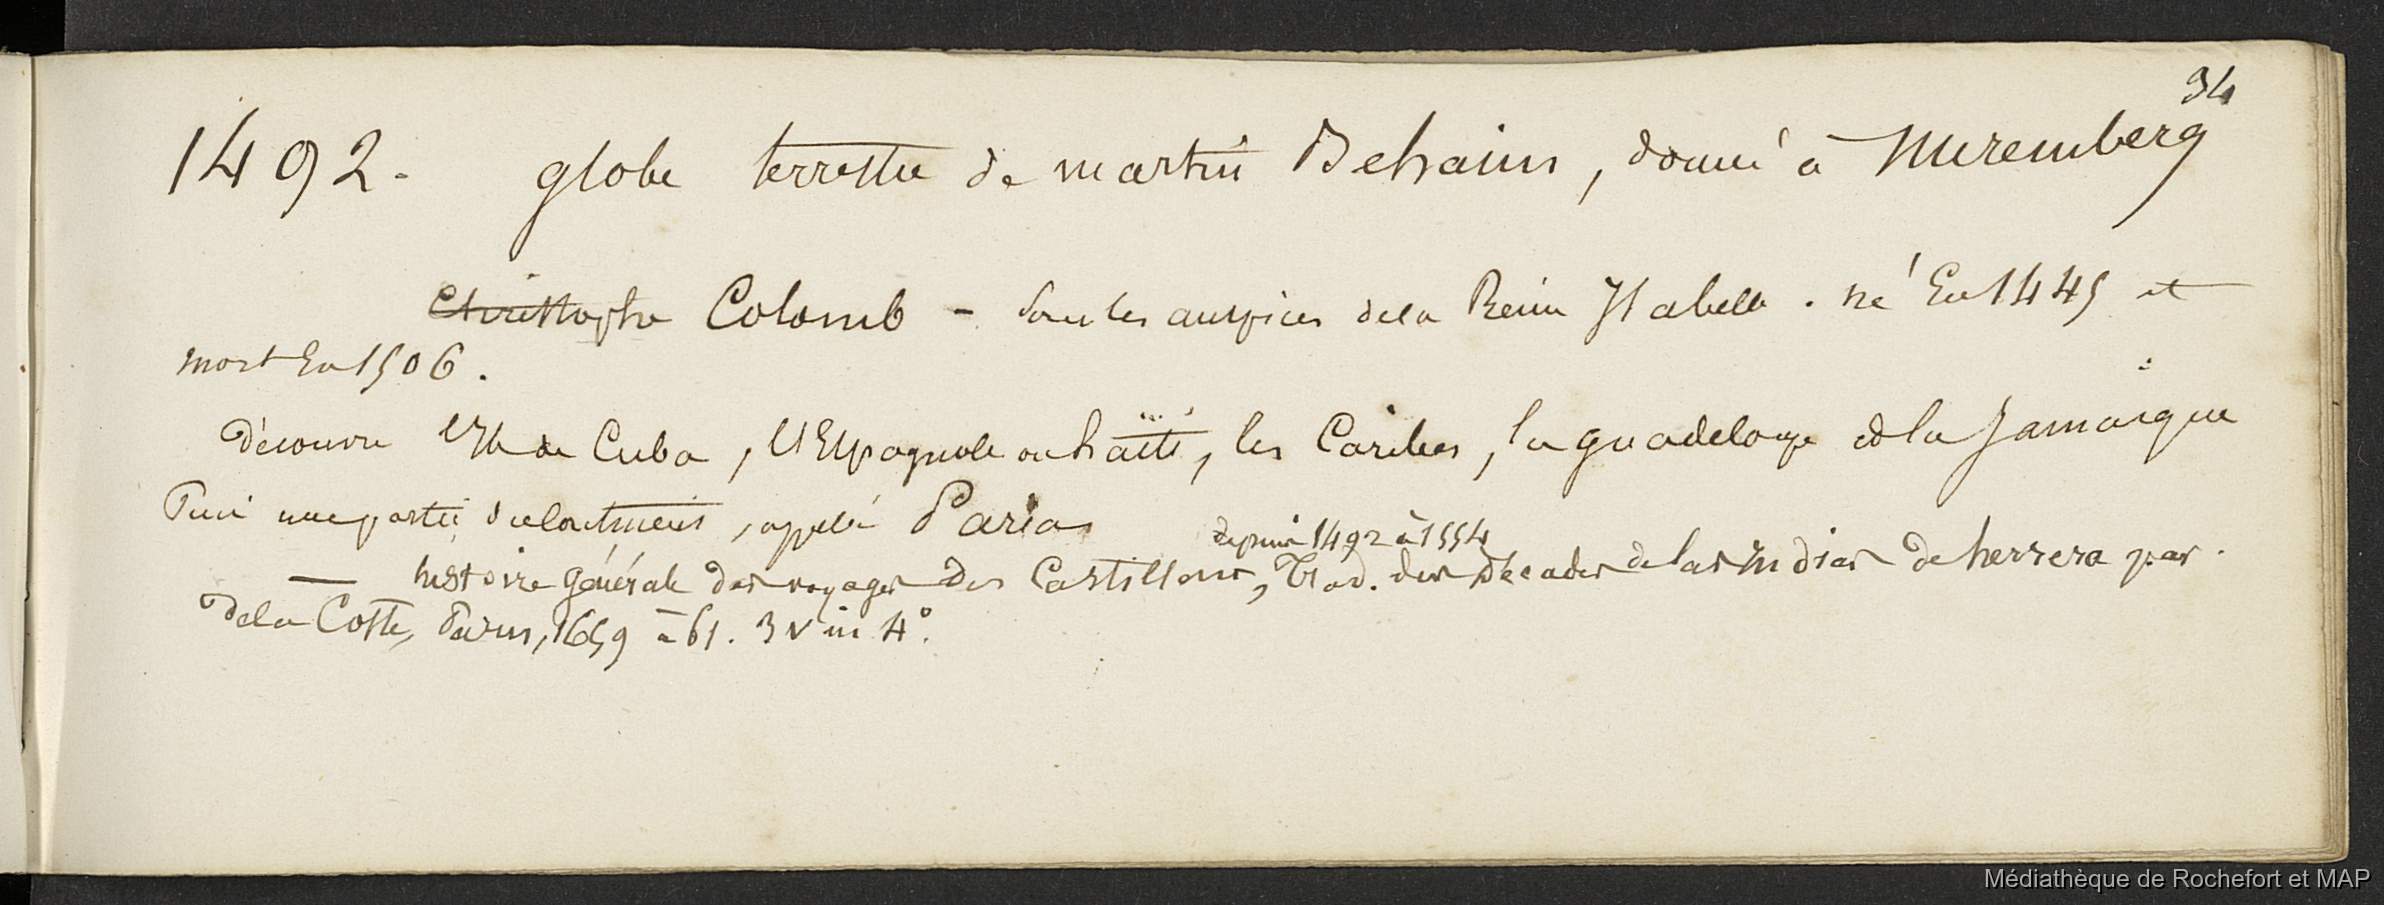 34
1492. globe terrestre de martin Behaim, donné à Nuremberg
Christophe Colomb - Sous les auspices de la Reine Isabelle. né En 1445 et
mort En 1506.
Découvre l'Ile de Cuba, l'Espagnole ou haïti, les Caribes, la guadeloupe et la Jamaïque
Puis une partie du Continent, appelée Parias
depuis 1492 à 1554
— histoire générale des voyages des Castillans, Trad. des Décades de las Indias de herrera par
de la Coste, Paris, 1659 à 61. 3 v in 4°.
Médiathèque de Rochefort et MAP